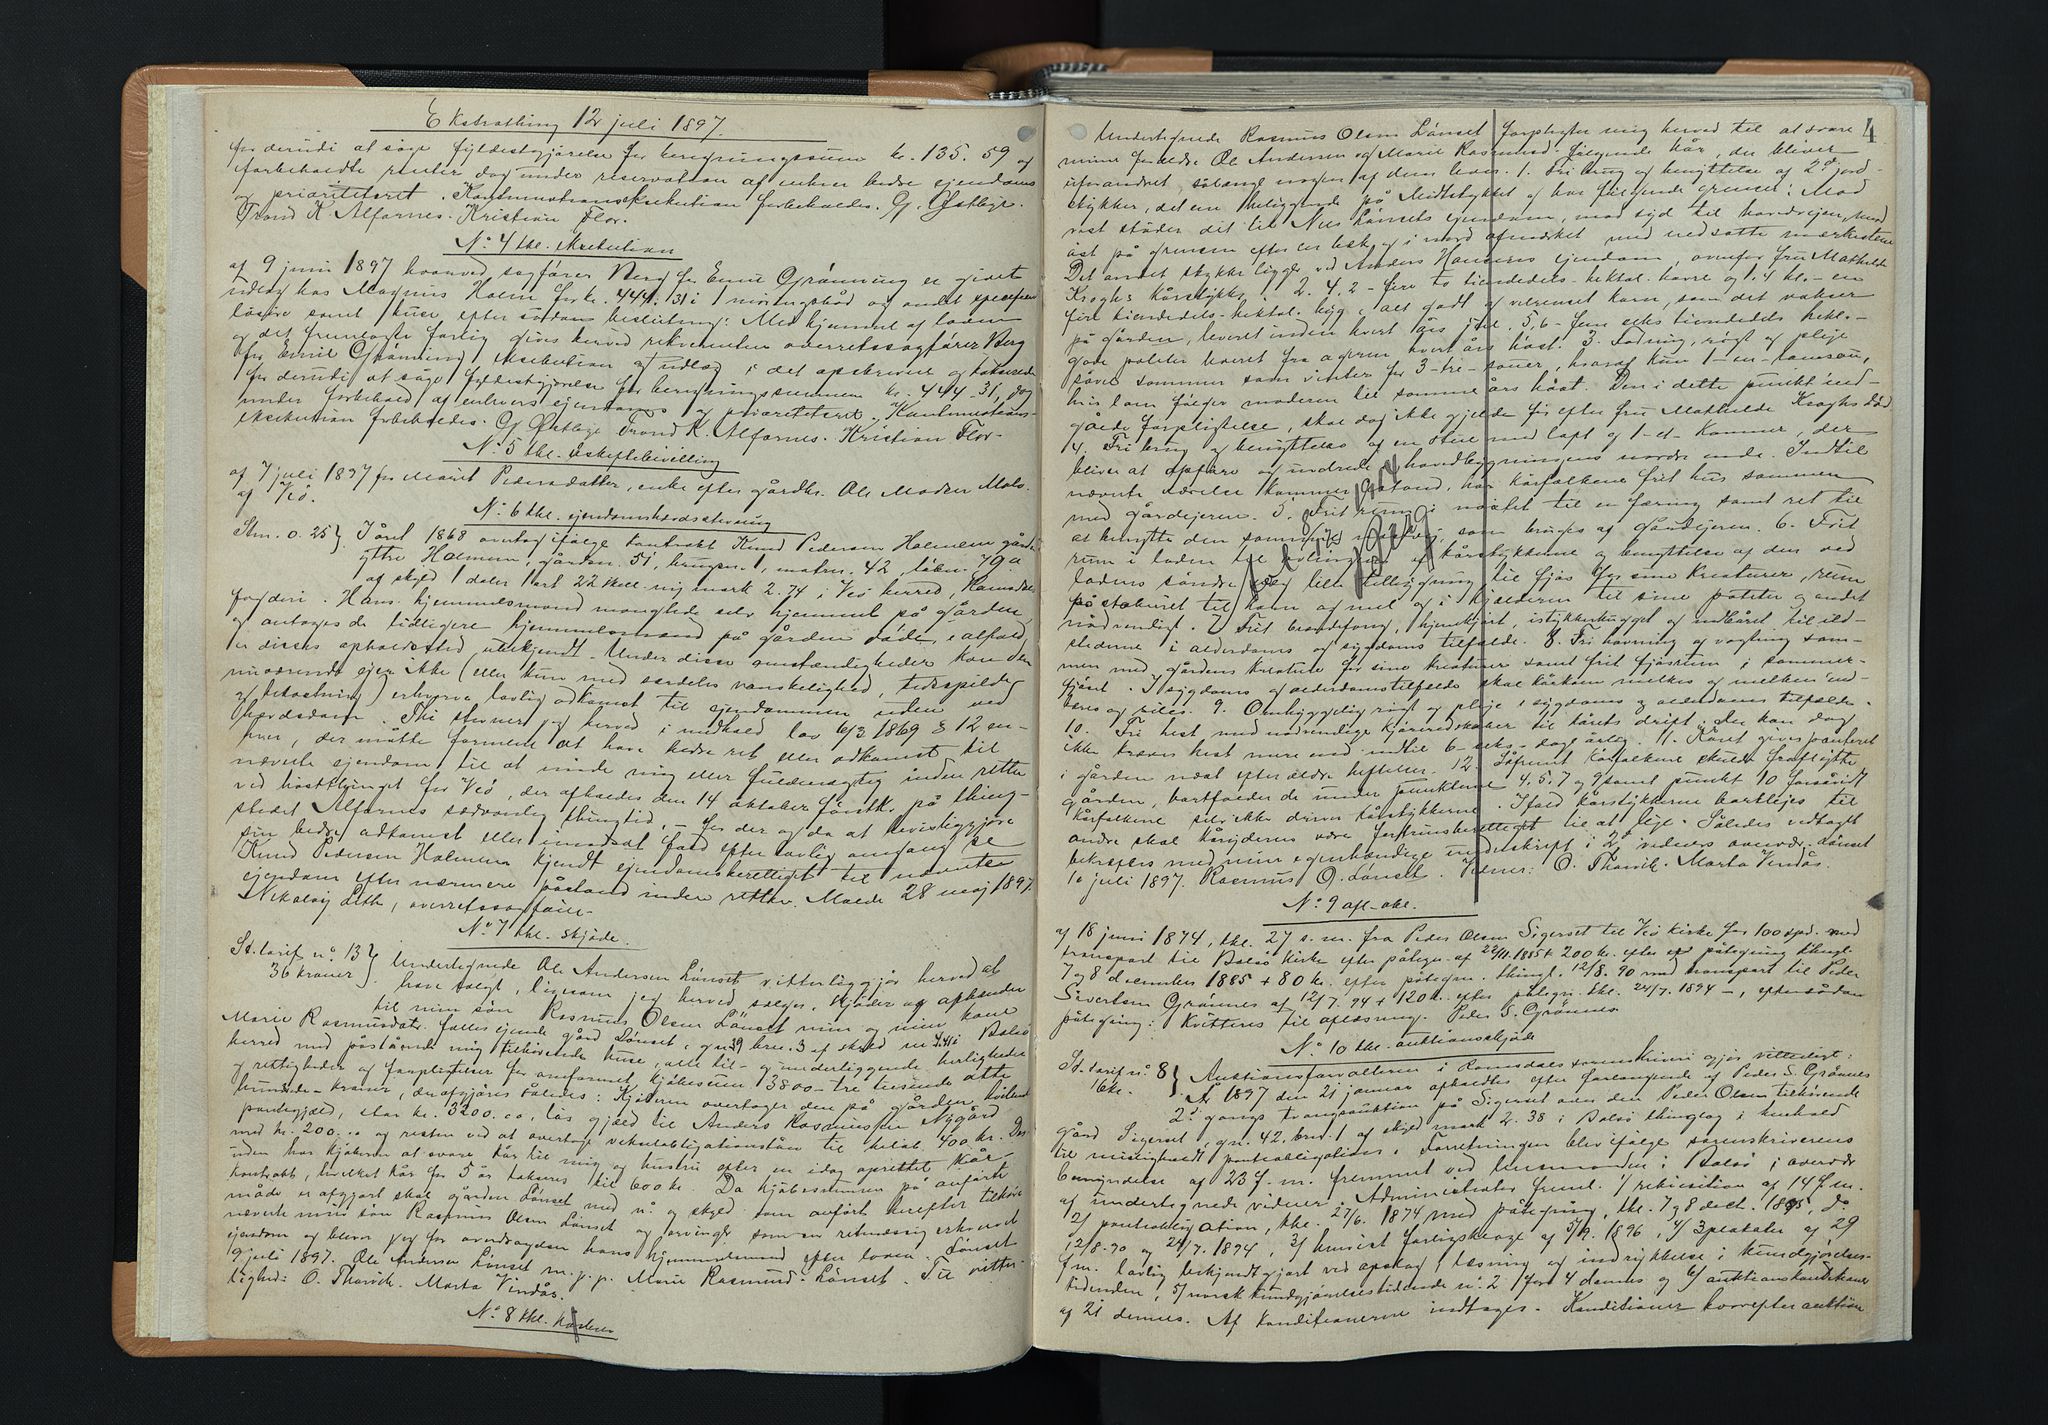 Ekstrathing 12 juli 1897.
for derudi at søge fyldestgjørelse for beregningssum kr. 135.59 og
forbeholdte renter dog under reservation af enhver bedre eiendoms
og prioritetsret. Kontinuationseksekution forbeholdes. G. Østbye.
Trond K. Alfarnes. Kristian Flor.
No 4 thl. eksekution
af 9 juni 1897 hvorved sagfører Berg for Emil Grønning er givet
udlæg hos Magnus Holm for kr. 444.31 i 1 nøringsbåd og andet specificeret
løsøre samt huse efter sådan beslutning: Med hjemmel af loven
og det fremlagte forlig gives herved rekvirenten overretssagfører Berg
for Emil Grønning eksekution og udlæg i det opskrevne og takserede
for derudi at søge fyldestgjørelse for beregningssummen kr. 444.31, dog
under forbehold af enhvers ejendoms og prioritetsret. Kontinuations-
eksekution forbeholdes. G. Østbye Trond K. Alfarnes. Kristian Flor.
No 5 thl. uskiftebevilling
af 7 juli 1897 for Marit Pedersdatter, enke efter gårdbr. Ole Madsen Malo.
af Veø.
No 6 thl. ejendomshævdsstevning
Stm. 0.25 } I året 1868 overtog ifølge kontrakt Knud Pedersen Holmem gården
yttre Holmem, gårdsn. 51, brugsn. 1, matrn. 42, løbn. 79a
af skyld 1 daler 1 ort 22 skill. ny mark 2.74 i Veø herred, Romsdals
fogderi. Hans hjemmelsmand manglede selv hjemmel på gården
og antages de tidligere hjemmelsmænd på gården døde, i alfald
er disses opholdssted ubekjendt. Under disse omstændigheder kan den
nuværende ejer ikke (eller kun med særdeles vanskelighed, tidsspilde
og bekostning) erhverve lovlig adkomst til ejendommen uden ved
hævdsdom. Thi stevner jeg herved i medhold lov 6/3 1869 § 12 en-
hver, der måtte formene at have bedre ret eller adkomst til
nævnte ejendom, til at møde mig eller fuldmægtig inden retten
ved høstthinget for Veø, der afholdes den 14 oktober førstk. på thing-
stedet Alfarnes sædvanlig thingtid, - for der og da at bevisliggjøre
sin bedre adkomst eller i modsat fald efter lovlig omgang se
Knud Pedersen Holmem kjendt ejendomsberettiget til nævnte
ejendom efter nærmere påstand inden retten. Molde 28 maj 1897.
Nikolaj Leth, overretssagfører.
No 7 thl. skjøde.
St. tarif no 13 } Undertegnede Ole Andersen Lønset vitterliggjør herved at
36 kroner } have solgt, ligesom jeg herved sælger, skjøder og afhænder
til min søn Rasmus Olsen Lønset min og min kone
Marie Rasmusdatr. fælles ejende gård Lønset, gn. 39 brn. 3 af skyld m. 4.41 i Bolsø
herred med påstående mig tilhørende huse, alle til- og underliggende herligheder
og rettigheder og forpligtelser for omforenet kjøbesum 3800 - tre tusende otte
hundrede - kroner, der afgjøres således: Kjøberen overtager den på gården hvilende
pantegjæld, stor kr. 3200.00, løs gjæld til Anders Rasmussen Nygård
med kr. 200.00 og resten ved at overtage vekselobligationslån til beløb 400 kr. Des-
uden har kjøberen at svare kår til mig og hustru efter en idag oprettet kår-
kontrakt, hvilket kår for 5 år takseres til 600 kr. Da kjøbesummen på anførte
måde er afgjort skal gården Lønset med no og skyld som anført herefter tilhøre
nævnte min søn Rasmus Olsen Lønset og arvinger som en retmæssig erhvervet
ejendom og bliver jeg for overdragelsen hans hjemmelsmand efter loven. Lønset
9 juli 1897. Ole Andersen Lønset m. p. p. Marie Rasmusd. Lønset. Til vitter-
lighed: O. Thorvik. Marta Vindås.
No 8 thl. kårbrev
4
Undertegnede Rasmus Olsen Lønset forpligter mig herved til at svare
mine forældre Ole Andersen og Marie Rasmusd. følgende kår, der bliver
uforandret, sålænge nogen af dem lever. 1. Fri brug og benyttelse af 2de jord-
stykker, det ene beliggende på Midtstykket og har følgende grænser: Mod
vest støder det til Nils Lønsets ejendom, mod syd til hovedvejen, mod
øst på grænsen efter en bæk og i nord afmærket med nedsatte mærkestene
Det andet stykke ligger ved Anders Hansens ejendom, ovenfor fru Mathilde
Kroghs kårstykke. 2. 4.2 - fire to tiendedels - hektol. havre og 1.4 hl. - en
fire tiendedels - hektol. byg, alt godt og velrenset korn, som det vokser
på gården, leveret inden hvert års jul. 5,6 - fem seks tiendedels hektl. -
gode poteter leveret fra ageren hvert års høst. 3. Fodring, røgt og pleje
såvel sommer som vinter for 3 - tre - souer, hvoraf kun 1 - en - lamsou,
hvis lam følger moderen til samme års høst. Den i dette punkt ind-
gåede forpligtelse, skal dog ikke gjælde før efter fru Mathilde Kroghs død
4. Fri brug og benyttelse af en stue med loft og 1 - et - kammer, der
bliver at opføre og indrede i hovedbygningens nordre ende. Indtil
nævnte værelse kommer istand, har kårfolkene frit hus sammen
med gårdejeren. 5. Frit rum i nøstet til en færing samt ret til
at benytte den samme, som bruges af gårdejeren. 6. Frit
rum i loden til avlingen af kårstykkerne og benyttelse af den ved
lodens søndre væg lille tilbygning til fjøs for sine kreaturer, rum
på stabburet til korn og mel og i kjælderen til sine poteter og andet
nødvendigt. 7. Frit brændefang, hjemkjørt, istykkerhugget og indbåret til ild-
stederne i alderdoms og sygdoms tilfælde. 8. Fri havning og vogtning sam-
men med gårdens kreature for sine kreaturer samt frit fjøsrum i sommer-
fjøset. I sygdoms og alderdomstilfælde skal kårkoen melkes og melken ind-
bæres og siles. 9. Omhyggelig røgt og pleje i sygdoms og alderdoms tilfælde.
10. Fri hest med nødvendige kjøreredskaber til kårets drift. Der kan dog
ikke kræves hest mere end indtil 6 - seks - dage årlig. 11. Kåret gives panteret
i gården næst efter ældre heftelser. 12. Såfremt kårfolkene skulde fraflytte
gården, bortfalder de under punkterne 4, 5, 7 og 9 samt punkt 10 forsåvidt
kårfolkene selv ikke driver kårstykkerne. Ifald kårstykkerne bortlejes til
andre skal kåryderen være fortrinsberettiget til at leje. Således vedtaget
bekræftes med min egenhændige underskrift i 2 vidners overvær. Lønset
10 juli 1897. Rasmus O. Lønset. Vidner: O. Thorvik. Marta Vindås.
No 9 afl. obl.
af 18 juni 1874, thl. 27 s. m. fra Peder Olsen Sigerset til Veø kirke for 100 spd. med
transport til Bolsø kirke efter påtegn. af 22/11.1885 + 200 kr. efter påtegning thingl.
7 og 8 december 1885 + 80 kr. efter påtegn. thingl. 12/8.90 med transport til Peder
Sivertsen Grønnes af 12/7.94 + 120 k. efter påtegn. thl. 24/7.1894 -, efter sådan
påtegning: Kvitteres til aflæsning. Peder S. Grønnes
No 10 thl. auktionsskjøde
St. tarif no 8 } Auktionsforvalteren i Romsdals sorenskriveri gjør vitterligt:
16 kr. } År 1897 den 21 januar afholdtes efter forlangende af Peder S. Grønnes
2de gangs tvangsauktion på Sigerset over den Peder Olsen tilhørende
gård Sigerset, gn. 42, brn. 1 af skyld mark 2.38 i Bolsø thinglag i henhold
til misligholdt pantobligation. Forretningen blev ifølge sorenskriverens
bemyndelse af 23 f. m. fremmet ved lensmanden i Bolsø i overvær
af undertegnede vidner. Administrator freml. 1/ rekvisition af 14 f. m.
2/ pantobligation, thl. 27/6. 1874, med påtegning, thl. 7 og 8 decb. 1885, do
12/8-90 og 24/7. 1894, 3/ beviset forligsklage af 5/9. 1896, 4/ 3 plakater af 29
f. m. lovlig bekjendtgjort ved opslag, læsning og indrykkelse i kundgjørelses-
tidenden, 5/ norsk kundgjørelsestidende no 2 for 4 dennes og 6/ auktionskonditioner
af 21 dennes. Af konditionerne indtages. Konditioner hvorefter auktion